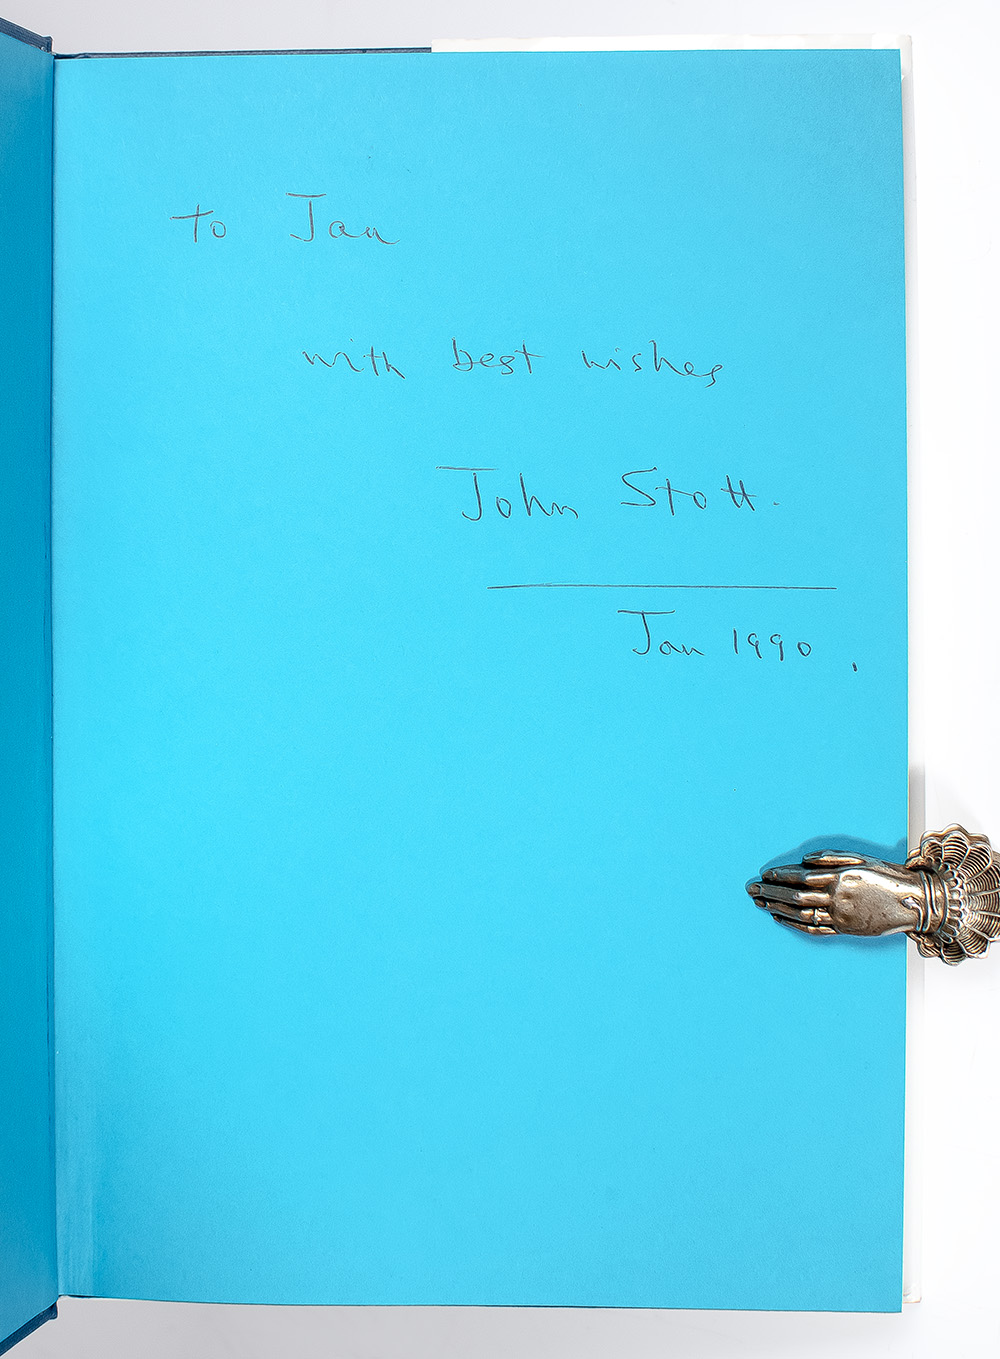 To Jan
with best wishes
John Stott.
Jan 1990.